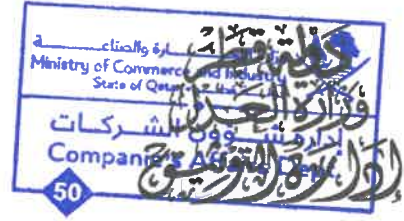 وزارة التجارة والصناعة
Ministry of Commerce and Industry
State of Qatar
إدارة شؤون الشركات
Companies Affairs Dept.
50
دولة قطر
وزارة العدل
إدارة التوثيق